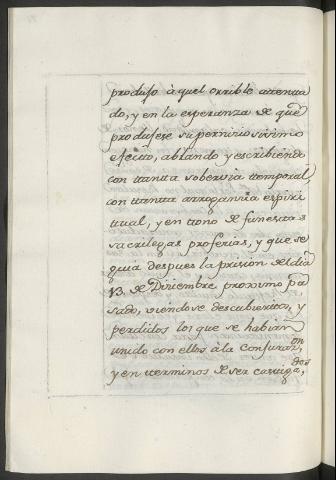 produjo àquel orrible attentta
do, y en la esperanza de que
produjese su perniciosissimo
efecto, ablando y escribiendo
con ttantta sobervia ttemporal
con ttantta arrogansia espiri
ttual, y en ttono de funestas
sacrilegas profesias, y que se
guia despues la prision del dia
13. de Diciembre proximo pa
sado, viendose descubierttos, y
perdidos los que se habian
unido con ellos à la conjuraz.on
y en tterminos de ser casttiga,
dos